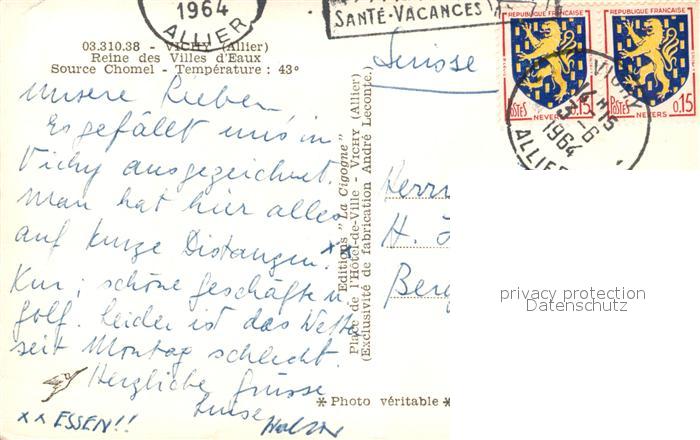 1964
ALLIER
SANTÉ-VACANCES
03.310.38 - VICHY (Allier)
Reine des Villes d'Eaux
Source Chomel - Température : 43°
Unsere Lieben
Es gefällt uns in
Vichy ausgezeichnet.
Man hat hier alles
auf kurze Distanzen: x x
Kur, schöne Geschäfte u.
Golf. Leider ist das Wetter
seit Montag schlecht.
Herzliche Grüsse
Luise
x x ESSEN!!
Editions "La Cigogne"
Place de l'Hôtel-de-Ville - VICHY (Allier)
(Exclusivité de fabrication André Leconte.)
* Photo véritable *
Suisse
Herrn
H.
Berg
REPUBLIQUE FRANÇAISE
POSTES 0,15
NEVERS
REPUBLIQUE FRANÇAISE
POSTES 0,15
NEVERS
VICHY
14H15
3-6
1964
ALLIER
privacy protection
Datenschutz